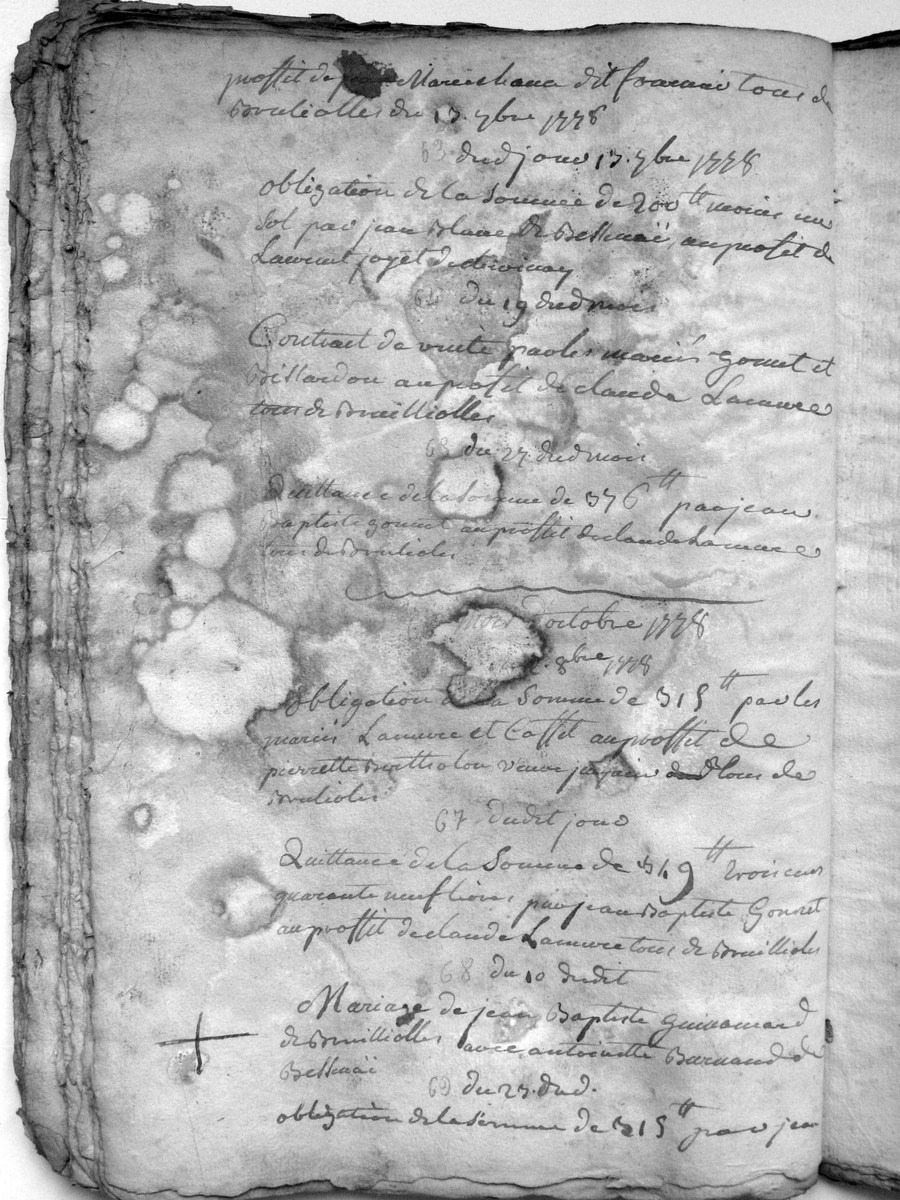 proffit de jean Mareschana dit fournio tous de
Brulieolles du 13. 7bre 1778
63 dud jour 13. 7bre 1778
obligation de la Somme de 200tt moins un
Sol par jean Blanc de Bessnaÿ au profit de
Laurent joyet de
64 du 19 dud mois
Contract de vente par les mariés gonnet et
Bissardon au profit de claude Lamure
tous de Brulliolles
65 du 27 dud mois
Quittance de la Somme de 376tt par jean
Baptiste gonnet au proffit de claude Lamure
tous de Brulioles
mois d'octobre 1778
8bre 1778
obligation de la Somme de 315tt par les
mariés Lamure et Caffit au proffit de
pierrette veuve tous de
Brulioles
67 dudit jour
Quittance de la Somme de 349tt trois cens
quarante neuf livres par jean Baptiste Gonnet
au proffit de claude Lamure tous de Brullioles
68 du 10 dudit
Mariage de jean Baptiste
de Brulliolles avec antoinette de
Bessnaÿ
69 du 23. dud.
obligation de la Somme de 315tt par jean